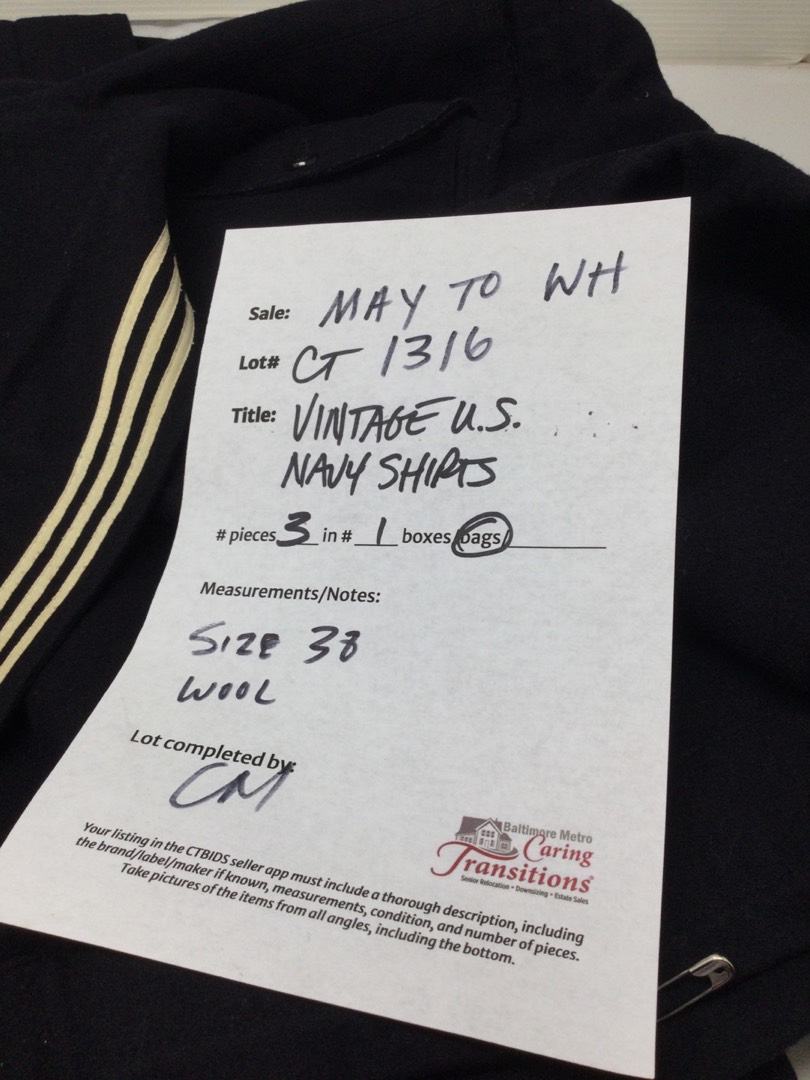 Sale: MAY TO WH
Lot# CT 1316
Title: VINTAGE U.S.
NAVY SHIRTS
# pieces 3 in # 1 boxes/bags/
Measurements/Notes:
SIZE 38
WOOL
Lot completed by:
CM
Baltimore Metro
Caring
Transitions®
Senior Relocation • Downsizing • Estate Sales
Your listing in the CTBIDS seller app must include a thorough description, including
the brand/label/maker if known, measurements, condition, and number of pieces.
Take pictures of the items from all angles, including the bottom.